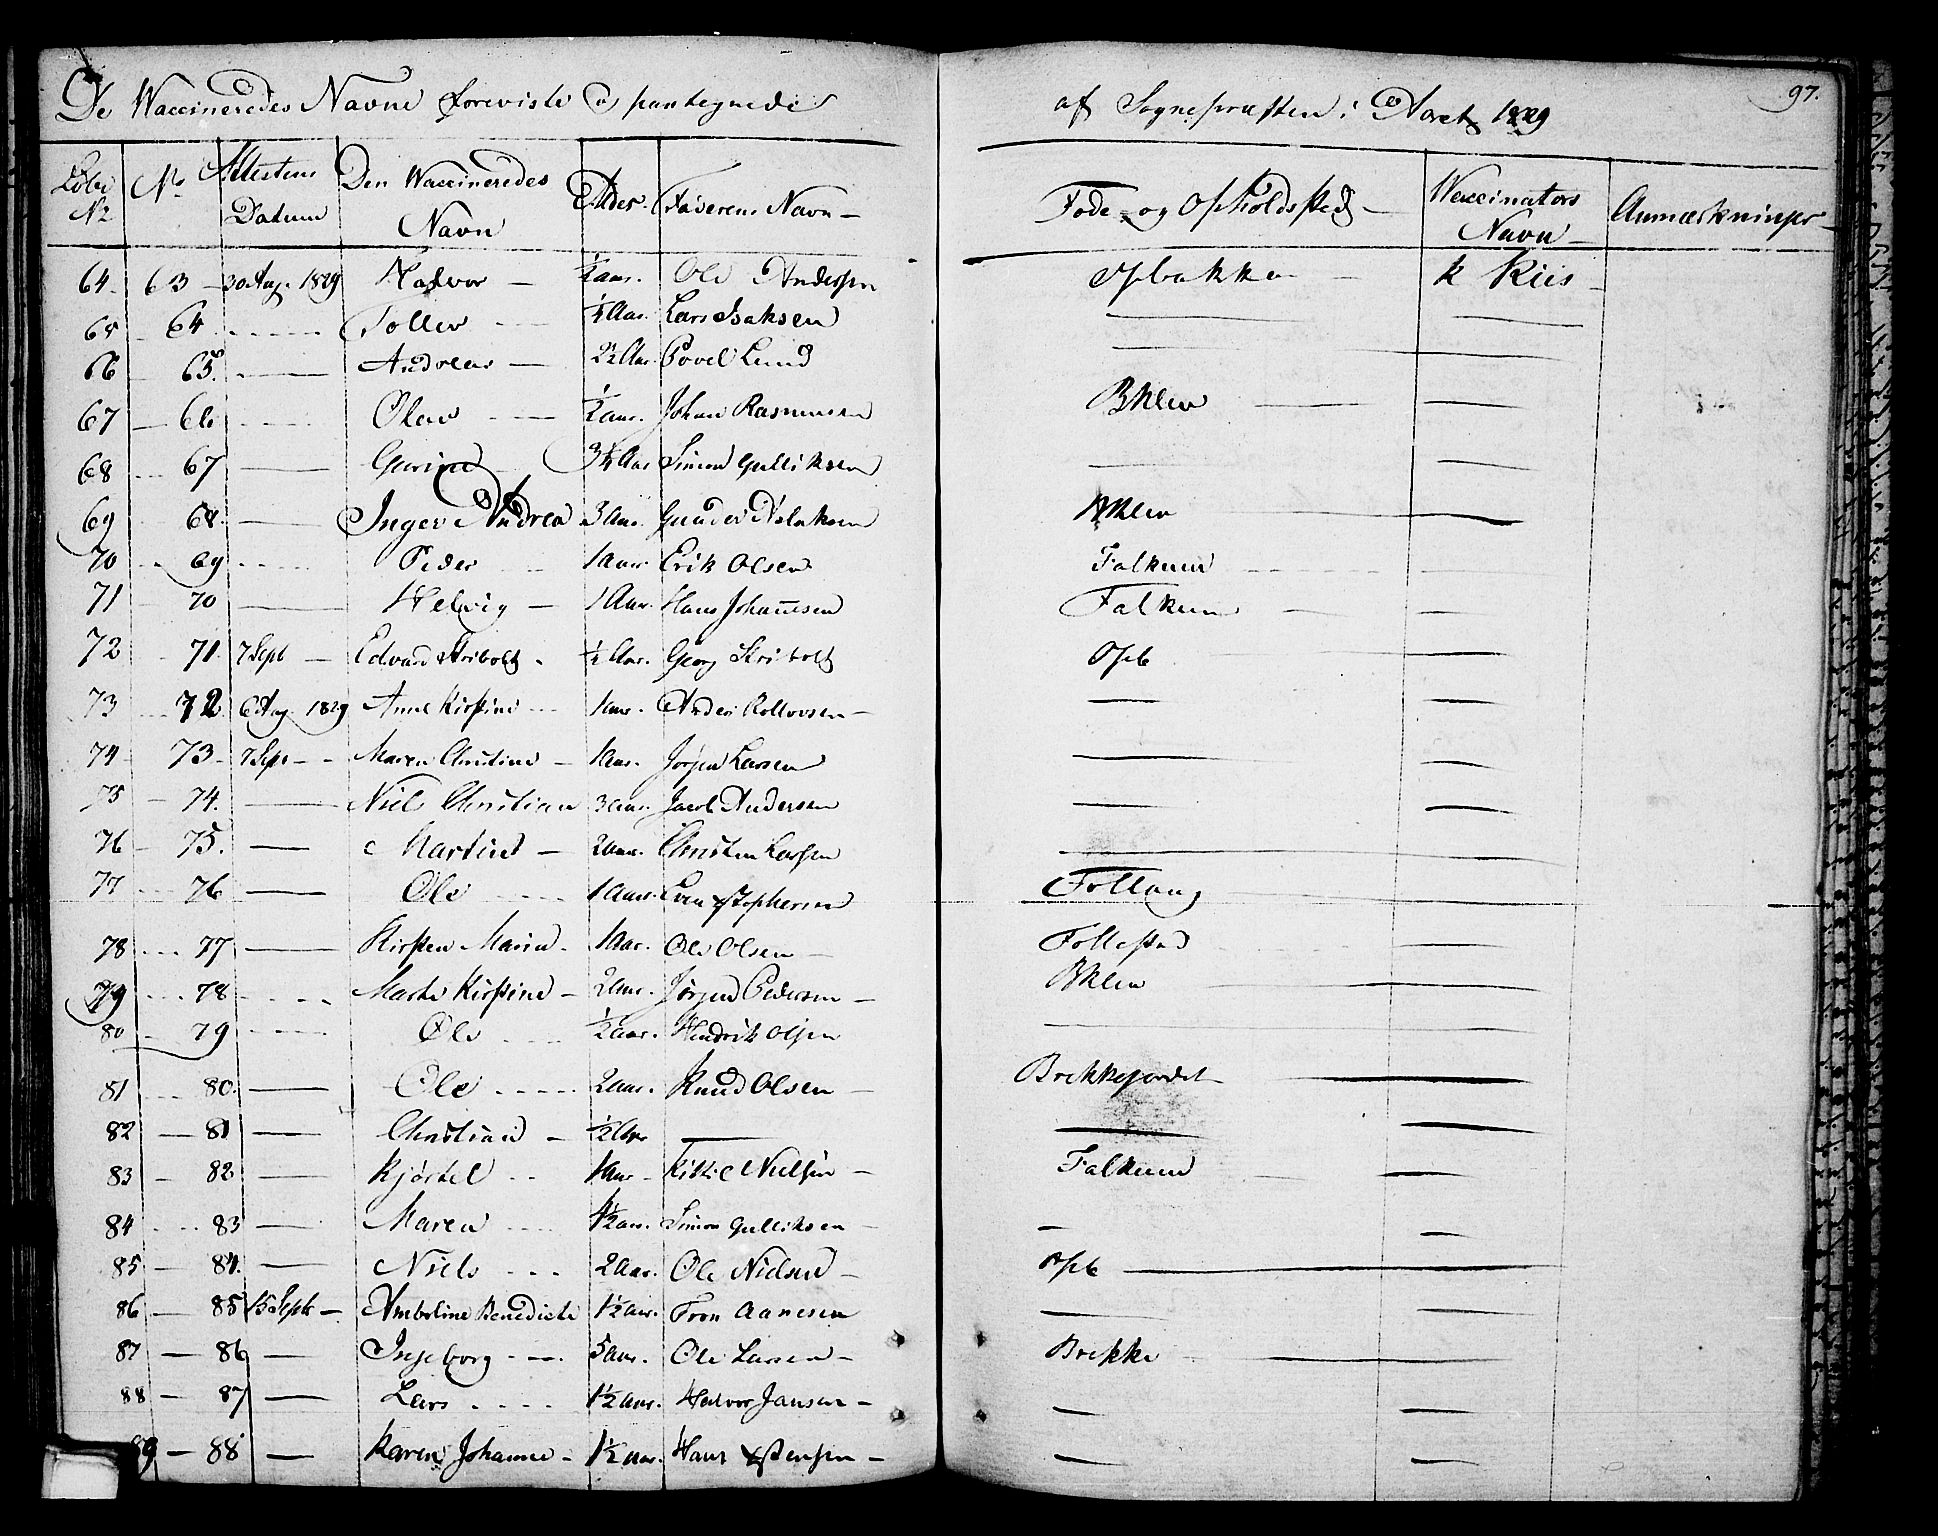 De Waccineredes Navne foreviste og paategnede af Sognepræsten i Aaret 1829
97.
Løbe No No Attestens Datum Den Waccineredes Navn Alder Faderens Navn Føde- og Opholdsted Waccinators Navn Anmærkninger
64 63 30 Aug. 1829 Hadvor ½ aar. Ole Andersen Opbakken K Riis
65 64 Tollev ¼ Aar. Lars Isaksen
66 65. Andreas 2½ Aar. Povel Lund
67 66 Olav ½ aar. Johan Rasmusen BKlev
68 67 Gurine Aar Simon Gulliksen
69 68. Inger Andrea 3 aar. Gunder BKlev
70 69 Peder 1 aar. Erik Olsen Falkum
71 70 Helvig 1 Aar. Hans Johannesen Falkum
72 71. 7 Sept Edvard Stribolt ½ Aar. Georg Stribolt Opb
73 72 6 Aug. 1829 Anne Kirstine 1 aar. Anders Rollovsen
74 73 7 Sept Maren Christine 1 aar. Jørgen Larsen
75 74. Niels Christian 3 aar. Jacob Andersen
76 75. Martine 2 aar. Christen Larsen
77 76 Ole 1 aar. Even Xstophersen Follaug
78 77 Kirsten Marie 1 aar. Ole Olsen Follestad
79 78 Marte Kirstine 2 aar. Jørgen Pedersen BKlev
80 79 Ole ½ aar. Hendrik Olsen
81 80. Ole 2 aar. Knud Olsen Brekkejordet
82 81 Christian ½ Aar
83 82 Kjøstel 1 aar Kittil Nielsen Falkum
84 83 Maren 4½ aar. Simon Gulliksen
85 84. Niels 2 aar. Ole Nielsen Opb
86 85 15 Septr Amboline Benedicte 1½ aar. Tron Aanesen
87 86 Ingeborg 5 aar. Ole Larsen Brekke
88 87 Lars 1½ aar. Halvor Jansen
89 88 Karen Johanne 1½ aar. Hans Xstensen